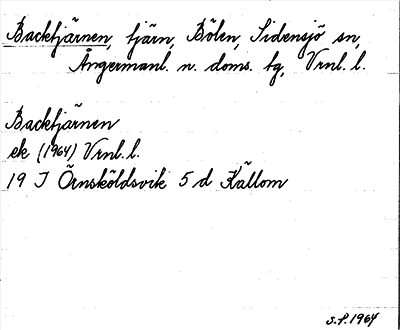 Backtjärnen, tjärn, Bölen, Sidensjö sn,
Ångermanl. n. doms. tg, Vrnl. l.
Backtjärnen
ek (1964) Vrnl. l.
19 J Örnsköldsvik 5 d Källom
S.F. 1964